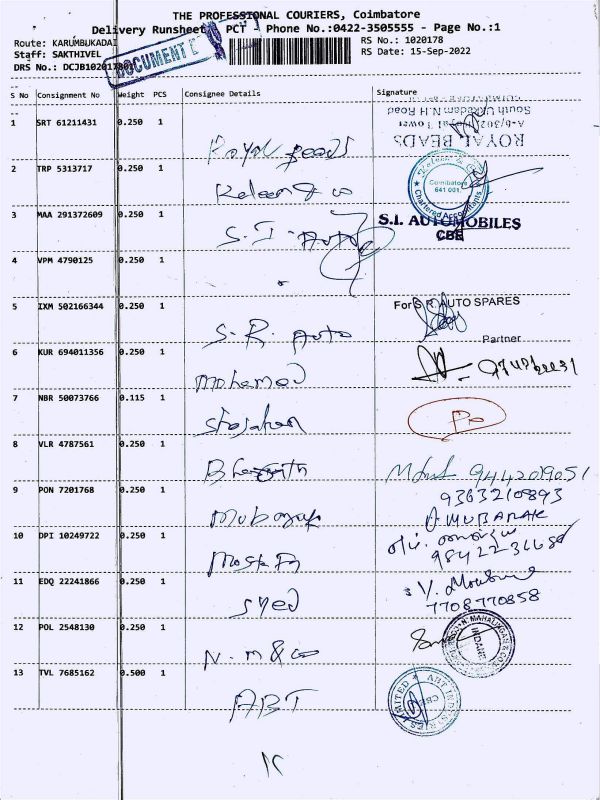 THE PROFESSIONAL COURIERS, Coimbatore
Delivery Runsheet PCT - Phone No.:0422-3505555 - Page No.:1
Route: KARUMBUKADAI
RS No.: 1020178
Staff: SAKTHIVEL
RS Date: 15-Sep-2022
DRS No.: DCJB1020178
DOCUMENT
S No Consignment No Weight PCS Consignee Details Signature
1 SRT 61211431 0.250 1 Royal Beads
ROYAL BEADS
A-6/302, Royal Tower
South Ukkadam N.H Road
2 TRP 5313717 0.250 1 Kaleen & co
Chartered Accountants
Coimbatore
641 001
3 MAA 291372609 0.250 1 S.I. Auto
S.I. AUTOMOBILES
CBE
4 VPM 4790125 0.250 1
5 IXM 502166344 0.250 1 S.R. Auto
For S R AUTO SPARES
Partner
6 KUR 694011356 0.250 1 Mohamed
7 NBR 50073766 0.115 1 Shajahan
8 VLR 4787561 0.250 1
9442019051
9 PON 7201768 0.250 1 Mubarak
9363210893
A.MUBARAK
10 DPI 10249722 0.250 1
11 EDQ 22241866 0.250 1 Syed
7708770858
12 POL 2548130 0.250 1 N.M & co
N. MAHALINGAM & CO
13 TVL 7685162 0.500 1 ABT
ABT INDUSTRIES LIMITED
CBE